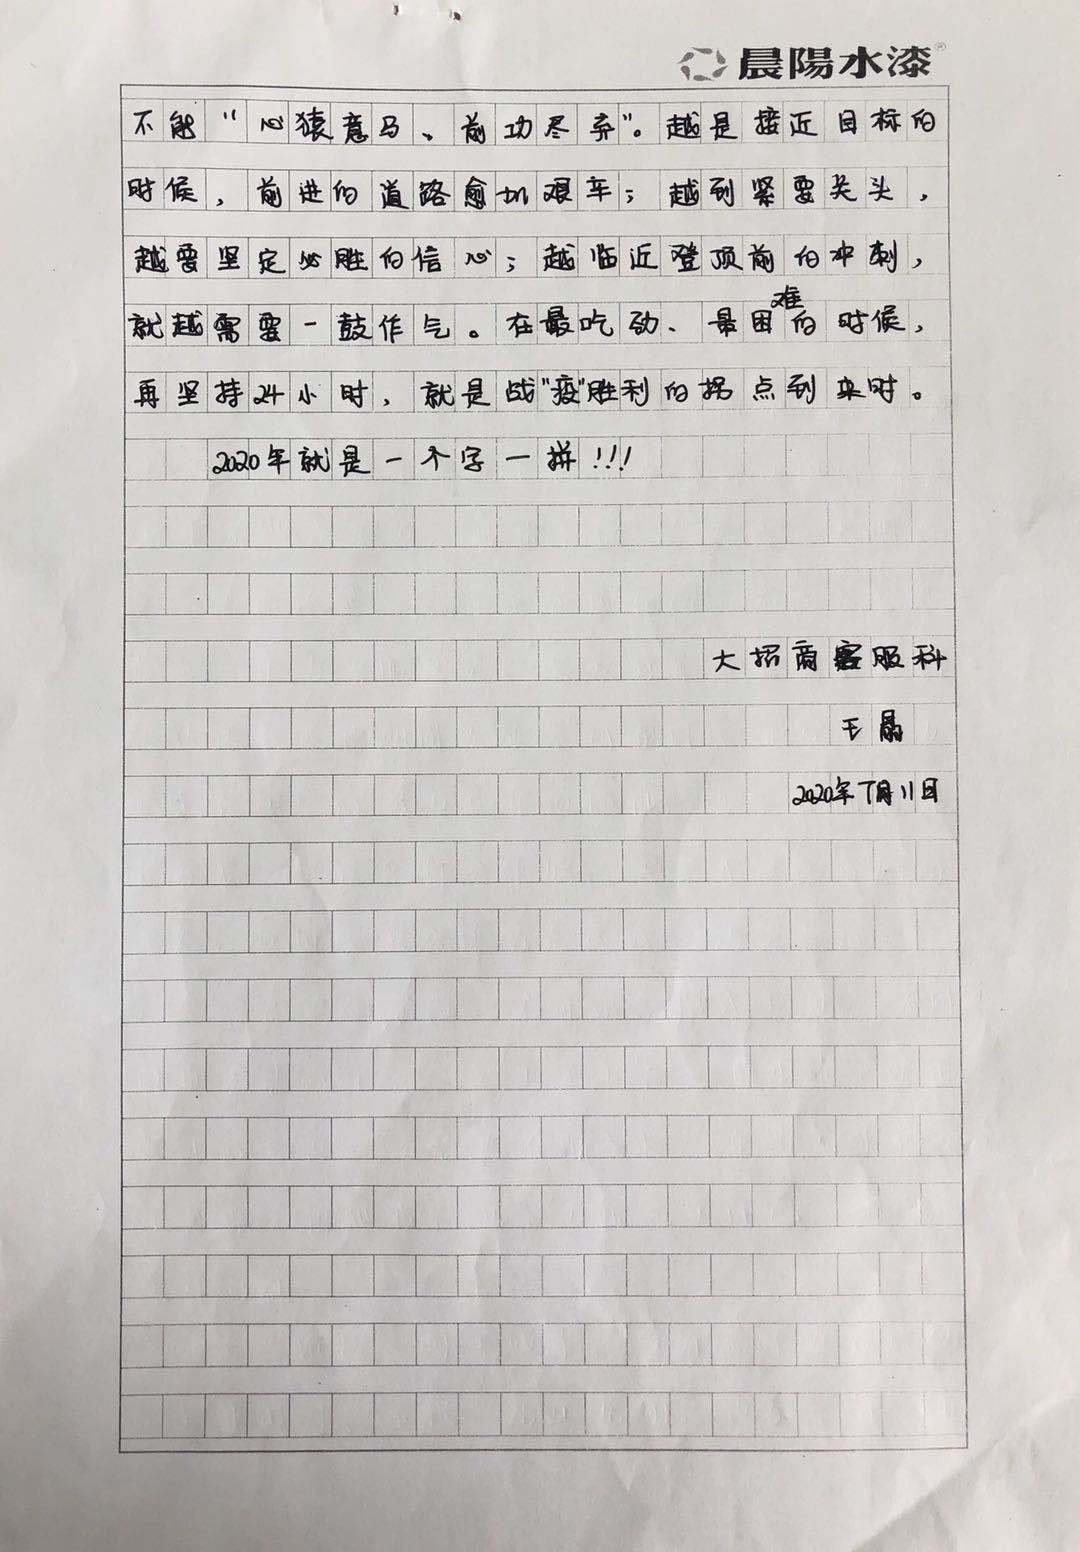 晨陽水漆®
不能“心猿意马、前功尽弃”。越是接近目标的
时候，前进的道路愈加艰车；越到紧要关头，
越要坚定必胜的信心；越临近登顶前的冲刺，
就越需要一鼓作气。在最吃劲、最困难的时候，
再坚持24小时，就是战“疫”胜利的拐点到来时。
2020年就是一个字一拼!!!
大招商客服科
王晶
2020年7月11日